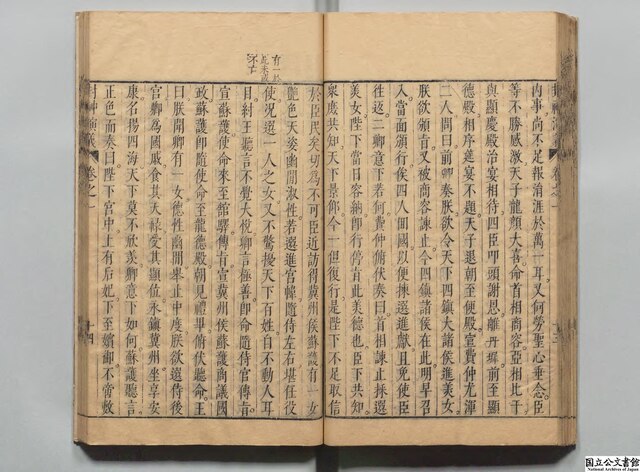 内事尚不足報涓涯於萬一耳又何勞聖心垂念臣
等不勝感激天子龍顏大喜命首相商容亞相比干
與顯慶殿治宴相待四臣叩頭謝恩離丹墀前至顯
德殿相序筵宴不題天子退朝至便殿宣費仲尤渾
二人問曰前卿奏朕欲令天下四鎮大諸侯進美女
朕欲頒旨又被商容諫止今四鎮諸侯在此明早召
入當面頒行俟四人回國以便揀選進獻且免使臣
往返二卿意下若何費仲俯伏奏曰首相諫止採選
美女陛下當日容納即行停旨此美德也臣下共知
衆庶共知天下景仰今一但復行是陛下不足取信
於臣民矣切為不可臣近訪得冀州侯蘇護有一女
艷色天姿幽閒淑性若選進宮幃隨侍左右堪任役
使况選一人之女又不驚擾天下百姓自不動人耳
目紂王聽言不覺大悅卿言極善即命隨侍官傳旨
宣蘇護使命來至館驛傳旨宣冀州侯蘇護商議國
政蘇護即隨使命至龍德殿朝見禮畢俯伏聽命王
曰朕聞卿有一女德性幽閒舉止中度朕欲選侍後
宮卿為國戚食其天祿受其顯位永鎮冀州坐享安
康名揚四海天下莫不欣羨卿意下如何蘇護聽言
正色而奏曰陛下宮中上有后妃下至嬪御不啻數
封神演義
卷之一
十四
國立公文書館
National Archives of Japan